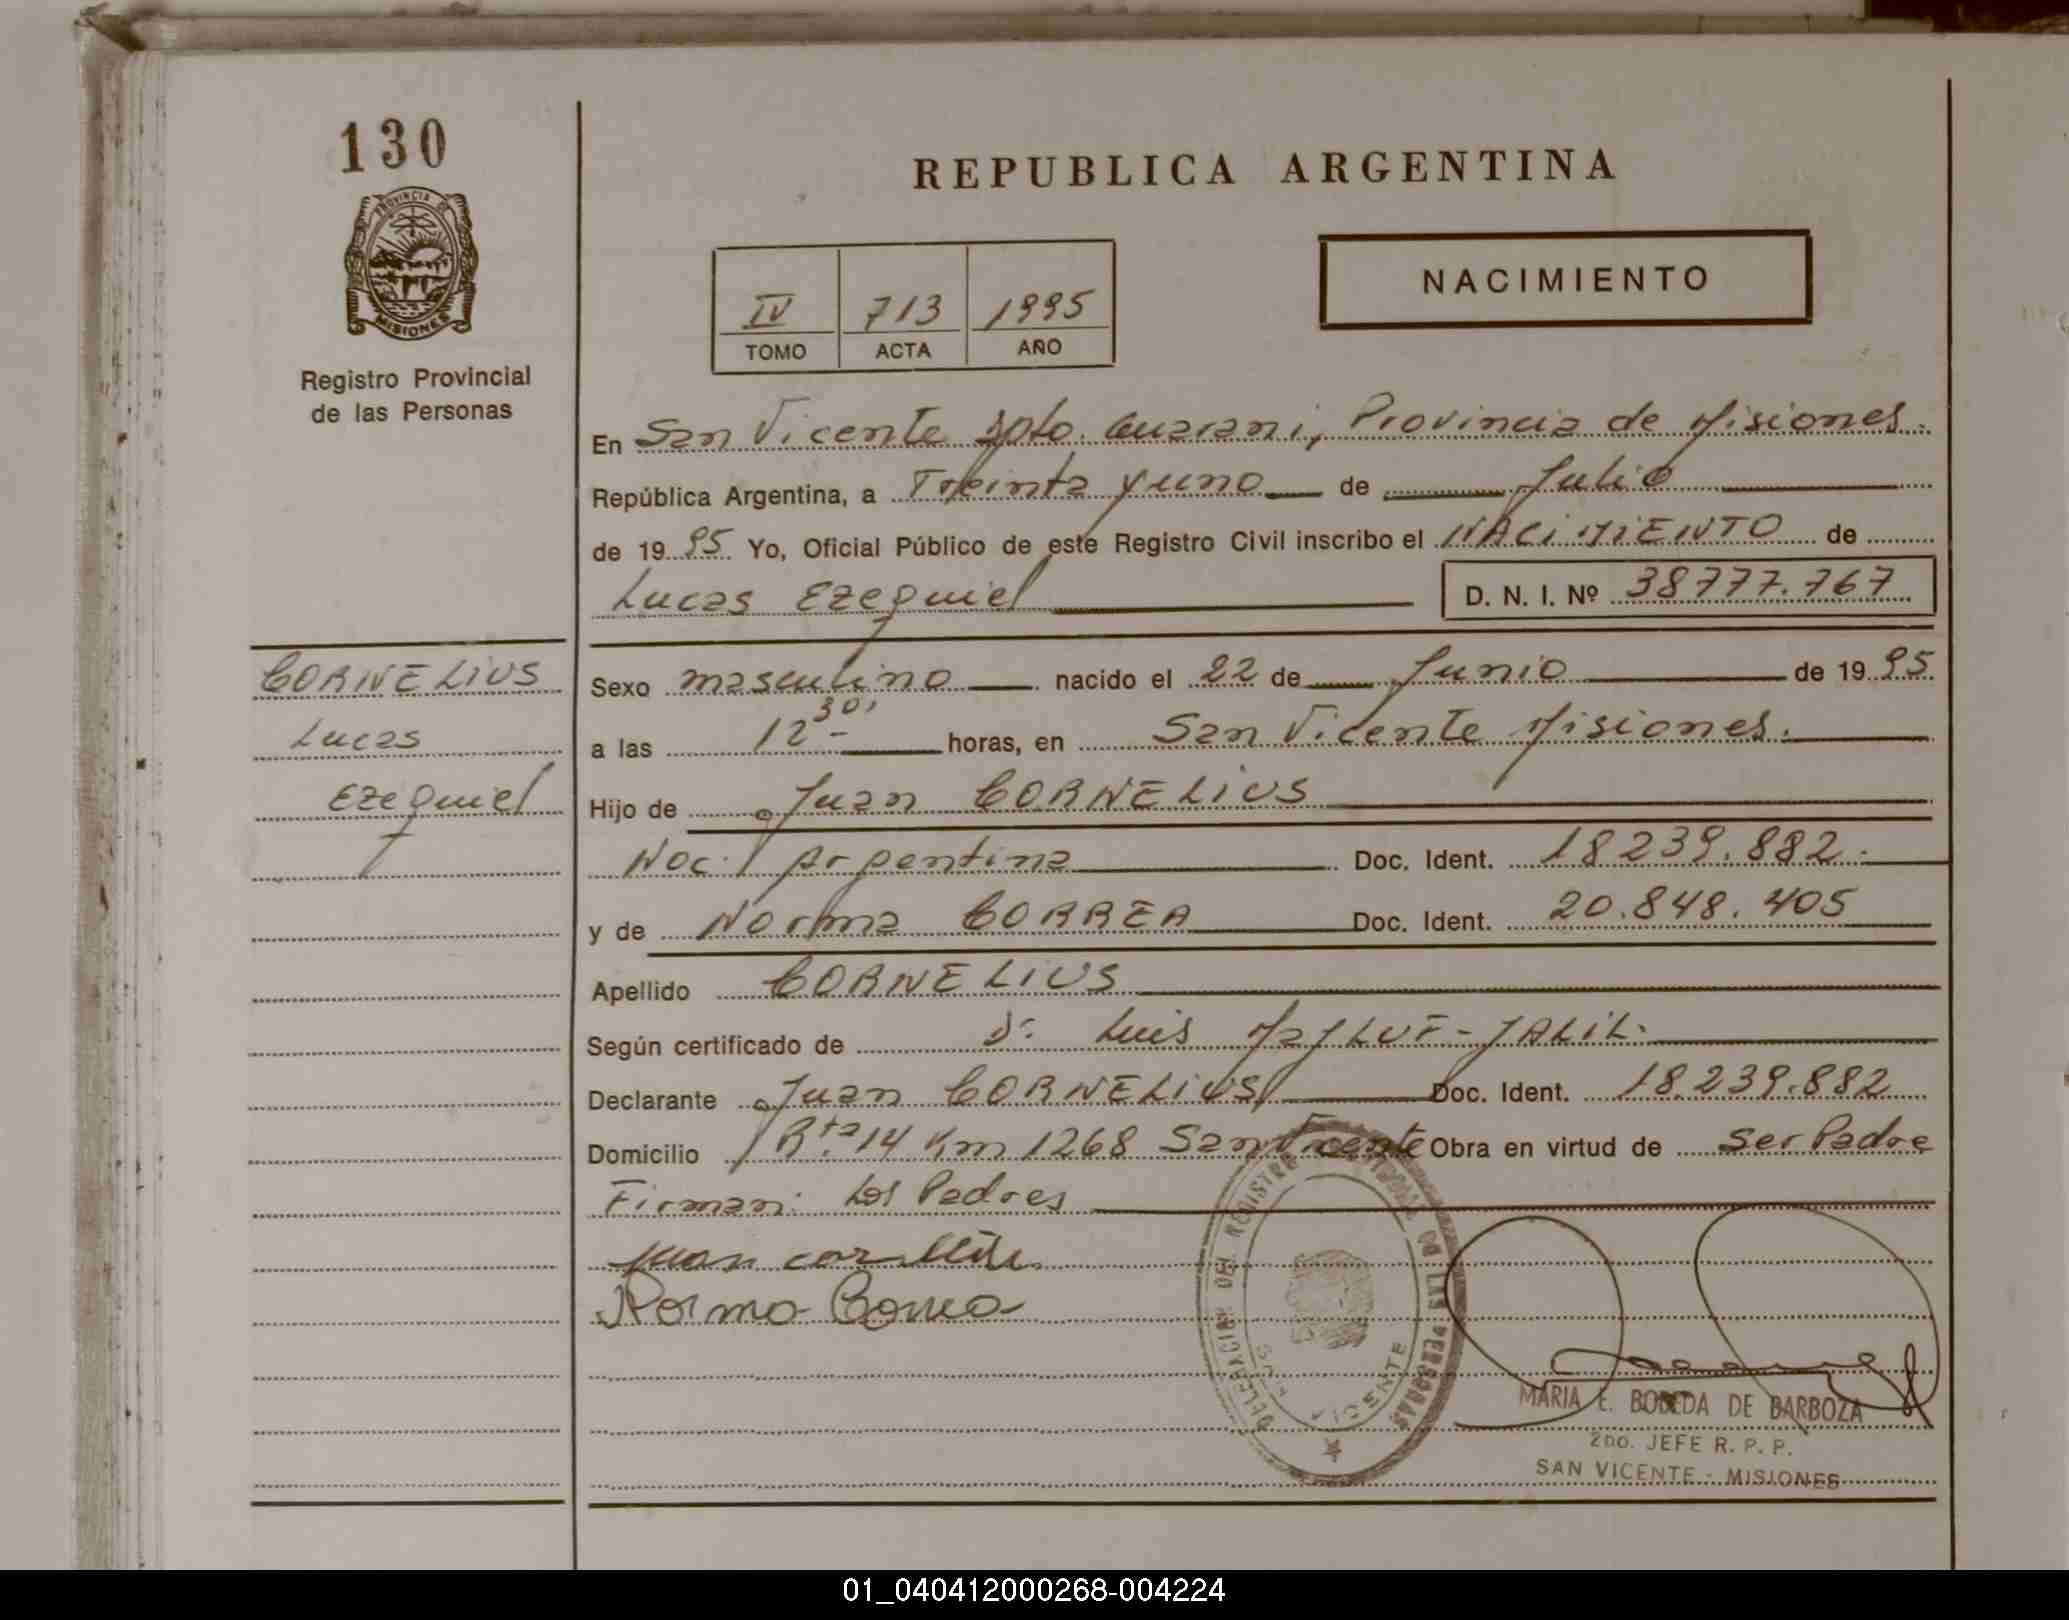 130
PROVINCIA DE
MISIONES
Registro Provincial
de las Personas
REPUBLICA ARGENTINA
IV 713 1995
TOMO ACTA AÑO
NACIMIENTO
En San Vicente Dpto. Guarani, Provincia de Misiones.
República Argentina, a Treinta y uno de Julio
de 1995 Yo, Oficial Público de este Registro Civil inscribo el NACIMIENTO de
Lucas Ezequiel D. N. I. Nº 38777.767
CORNELIUS
Lucas
Ezequiel
Sexo masculino nacido el 22 de Junio de 1995.
a las 12 30, horas, en San Vicente Misiones.
Hijo de Juan CORNELIUS
Nac. Argentina Doc. Ident. 18239.882.
y de Norma CORREA Doc. Ident. 20.848.405
Apellido CORNELIUS
Según certificado de Dr. Luis MaJLUF-JALIL.
Declarante Juan CORNELIUS Doc. Ident. 18.239.882
Domicilio Rta. 14 Km 1268 San Vicente Obra en virtud de ser Padre
Firman: Los Padres
Juan
Norma Correa
DELEGACION DEL REGISTRO PROVINCIAL DE LAS PERSONAS
SAN VICENTE
MARIA E. BOBEDA DE BARBOZA
2do. JEFE R. P. P.
SAN VICENTE - MISIONES
01_040412000268-004224